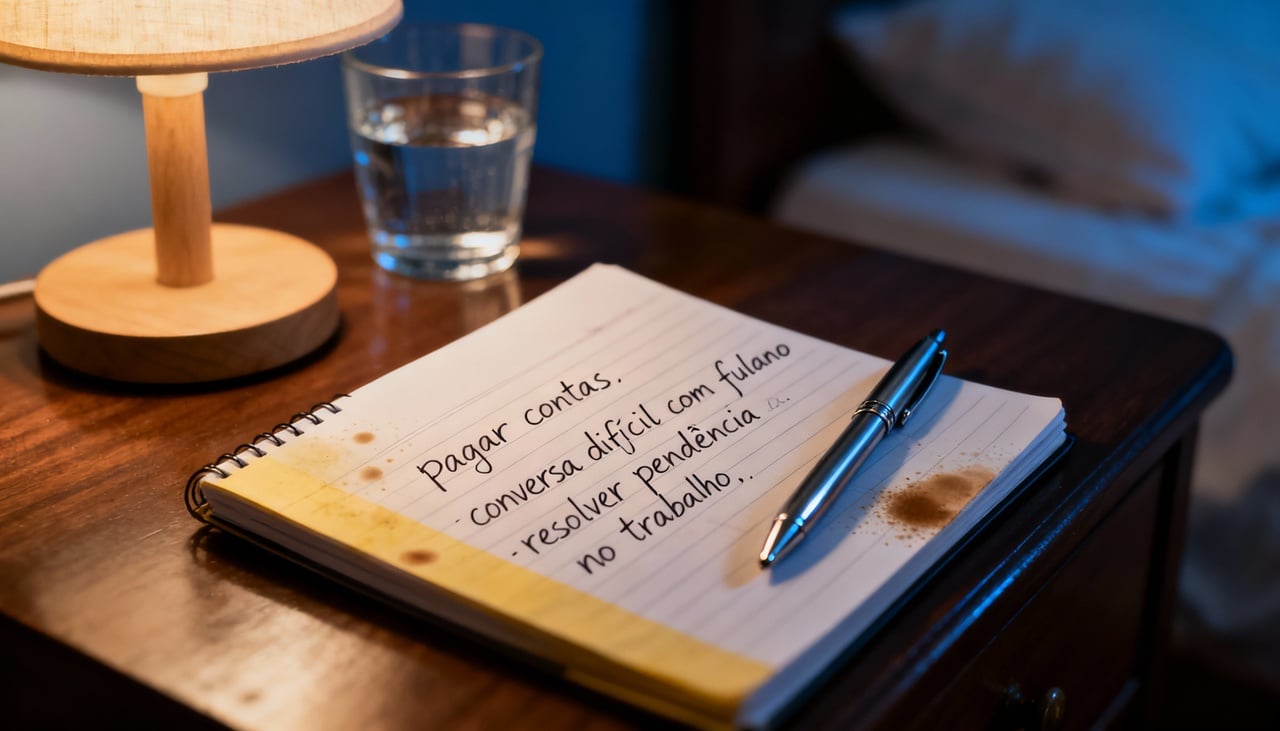 pagar contas.
- conversa difícil com fulano
- resolver pendência
no trabalho,.